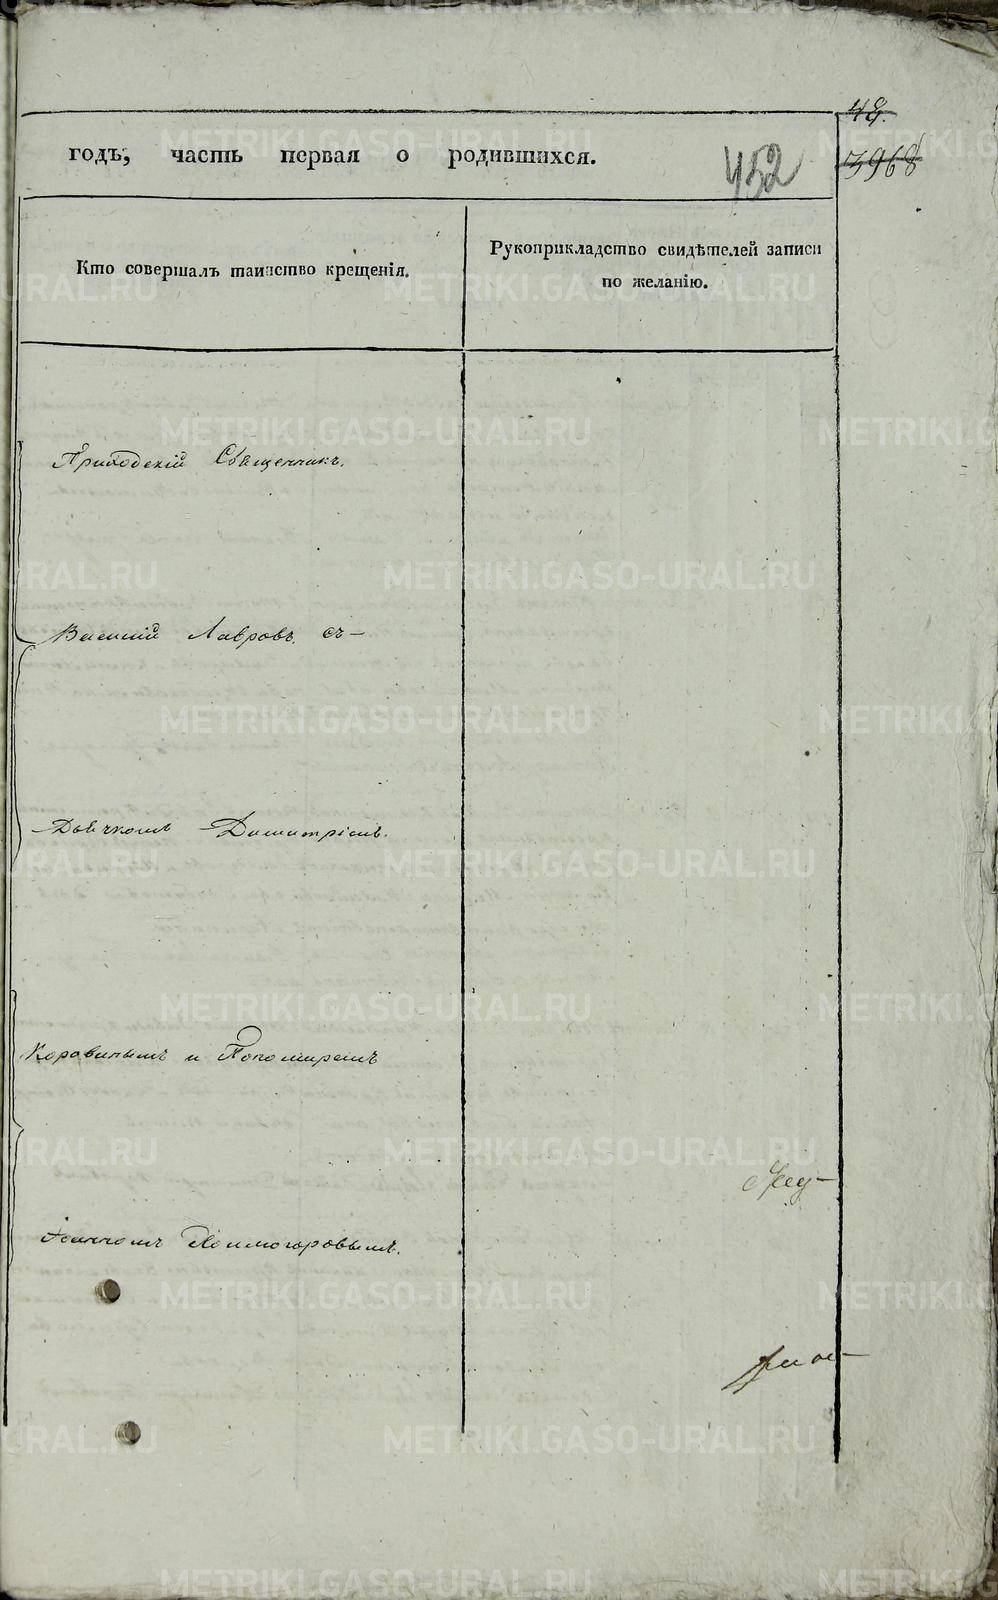 48.
годъ, часть первая о родившихся.
452
3968
Кто совершалъ таинство крещенія.
Рукоприкладство свидѣтелей записи
по желанію.
Приходскій Священникъ.
Василій Лавровъ. съ
Дьячкомъ Димитріемъ.
Коровинымъ и Пономаремъ
Іоанномъ Холмогоровымъ.
METRIKI.GASO-URAL.RU